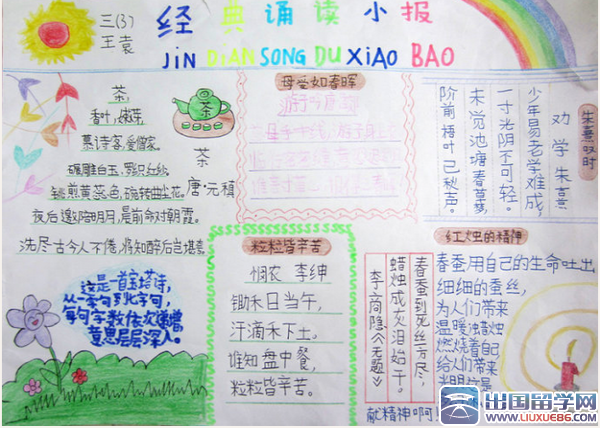 三(3)
王袁
经典诵读小报
JIN DIAN SONG DU XIAO BAO
茶,
香叶,嫩芽,
慕诗客,爱僧家。
碾雕白玉,罗织红纱
铫煎黄蕊色,碗转曲尘花。
夜后邀陪明月,晨前命对朝霞。
洗尽古今人不倦,将知醉后岂堪夸
茶
茶
唐·元稹
这是一首宝塔诗,
从一字句到七字句,
每句字数依次递增
意思层层深入。
母爱如春晖
粒粒皆辛苦
悯农 李绅
锄禾日当午,
汗滴禾下土。
谁知盘中餐,
粒粒皆辛苦。
朱熹叹时
劝学 朱熹
少年易老学难成,
一寸光阴不可轻。
未觉池塘春草梦,
阶前梧叶已秋声。
红烛的精神
春蚕到死丝方尽,
蜡烛成灰泪始干。
李商隐《无题》
春蚕用自己的生命吐出
细细的蚕丝,
为人们带来
温暖,蜡烛
燃烧着自己
给人们带来
光明,这是
献精神啊!
出国留学网
WWW.LIUXUE86.COM